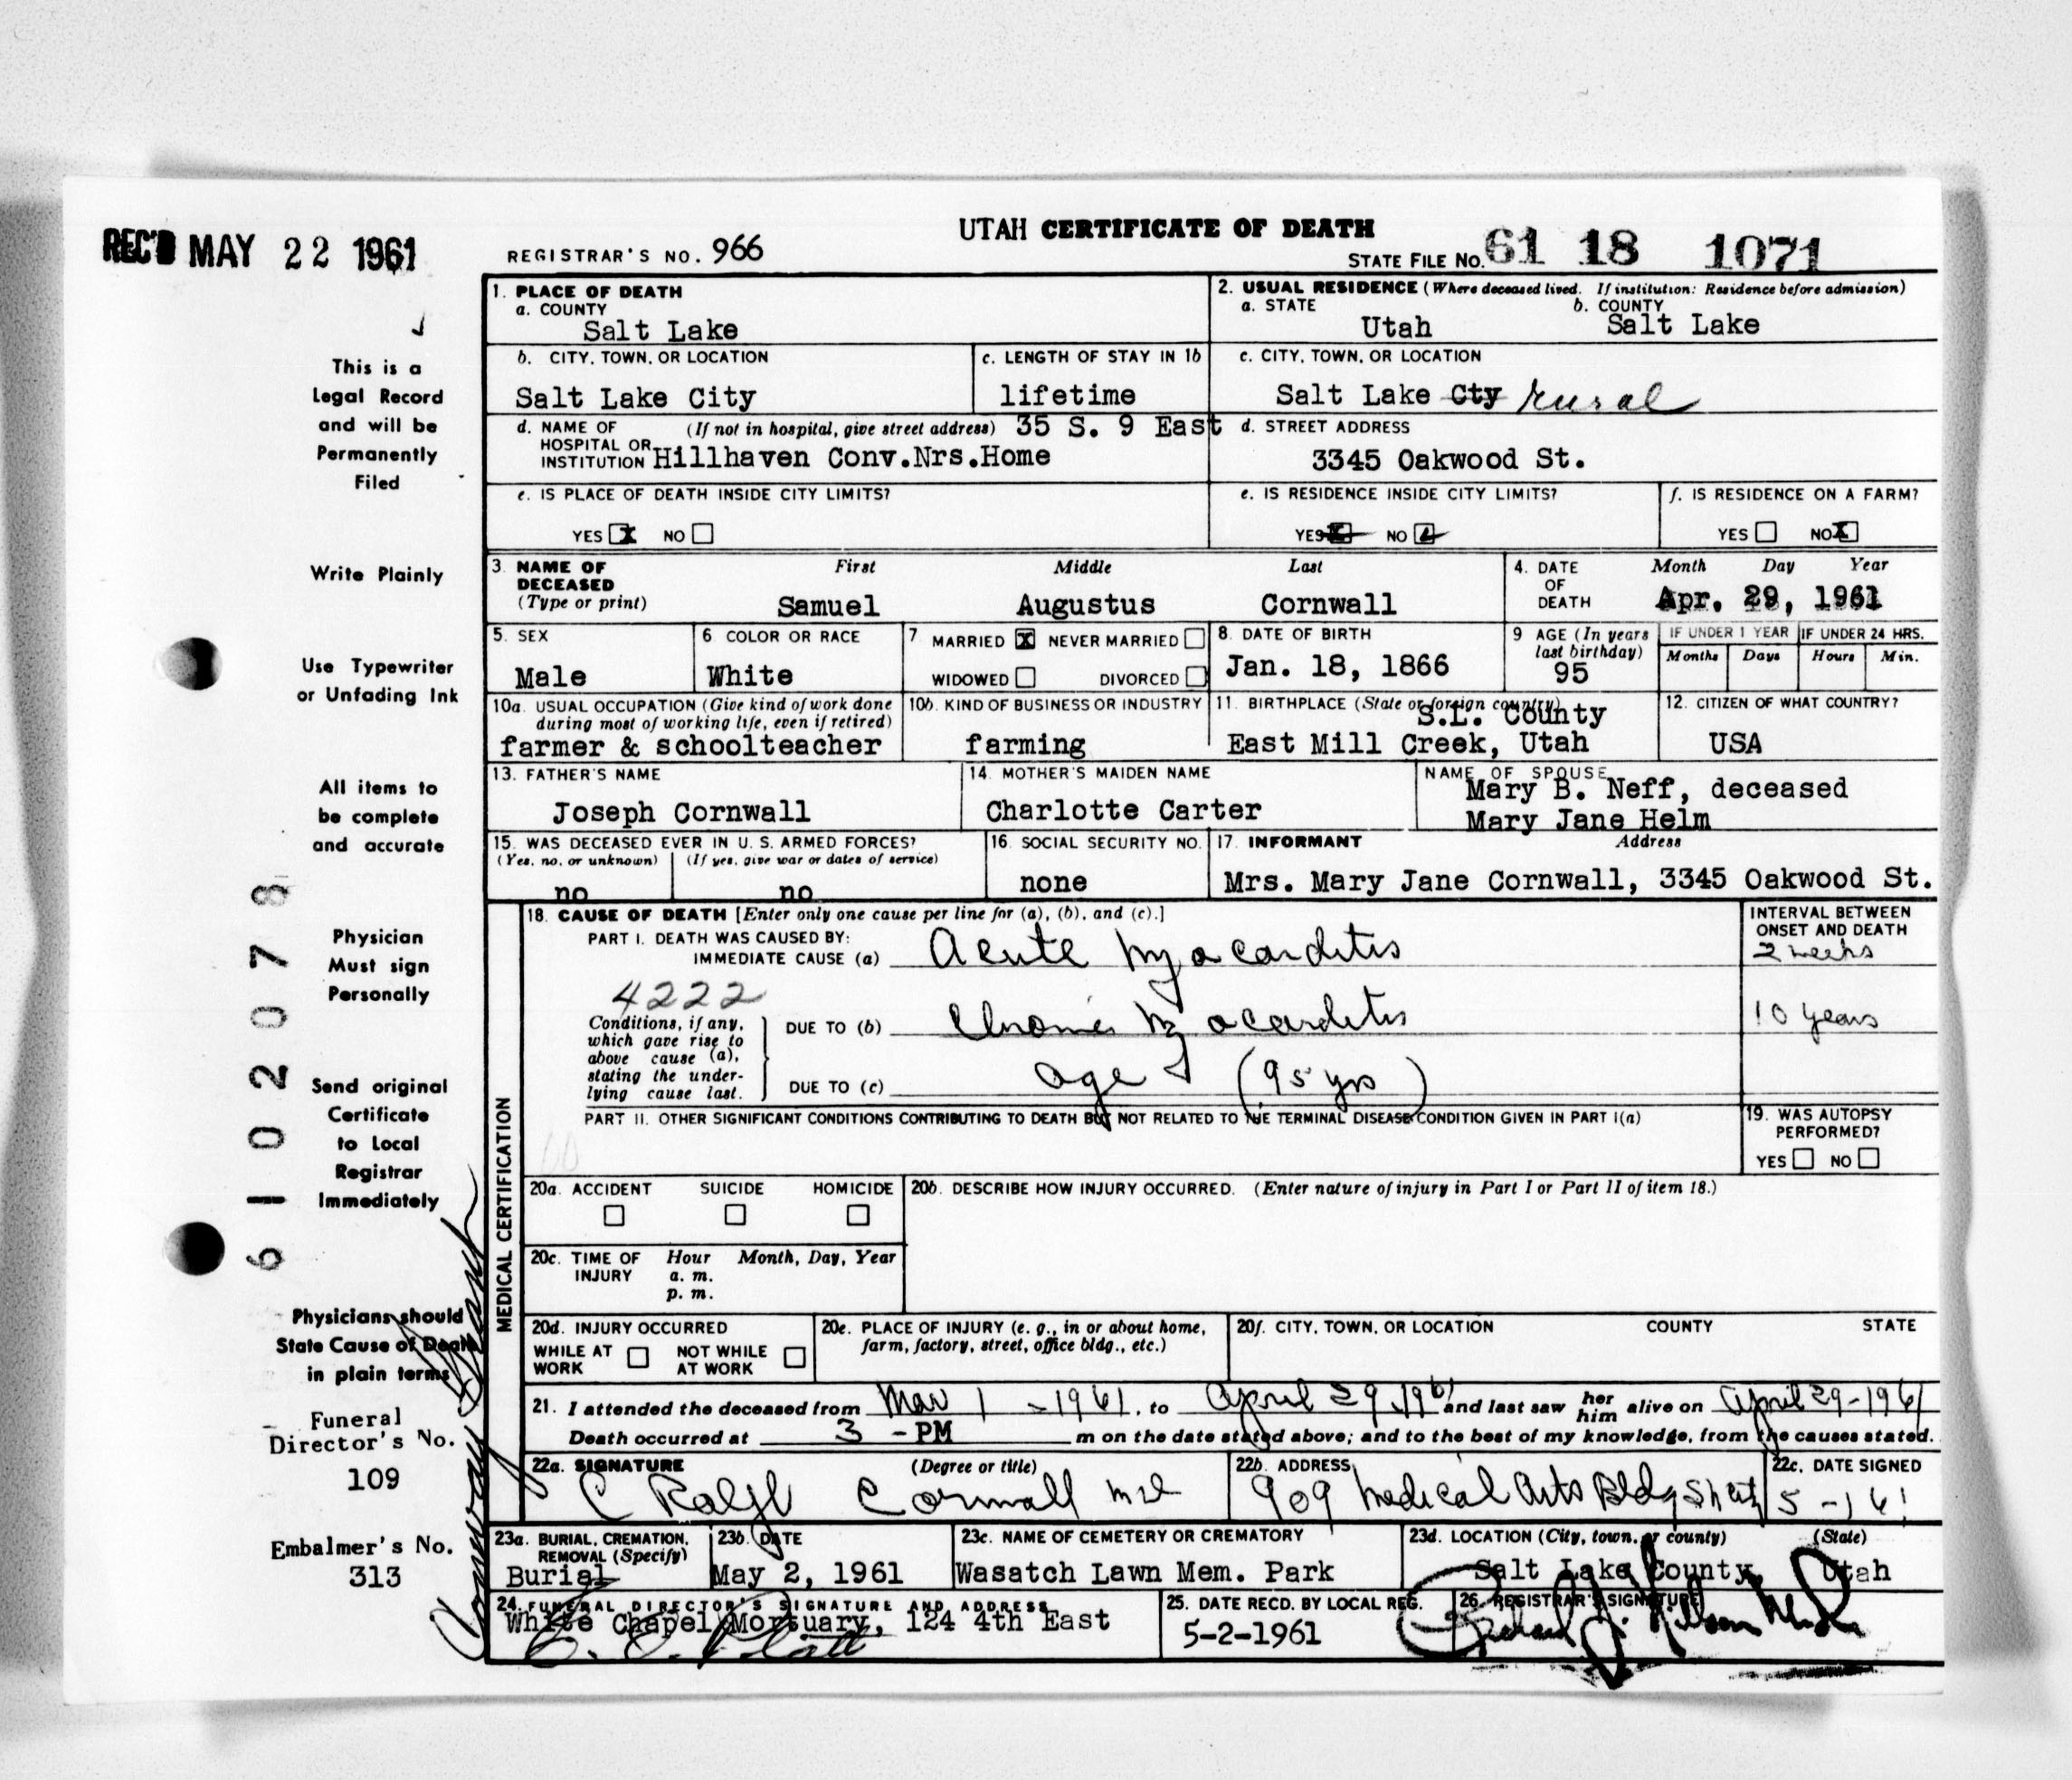 REC'D MAY 22 1961
UTAH CERTIFICATE OF DEATH
REGISTRAR'S NO. 966
STATE FILE NO. 61 18 1071
1. PLACE OF DEATH
a. COUNTY
Salt Lake
2. USUAL RESIDENCE (Where deceased lived. If institution: Residence before admission)
a. STATE b. COUNTY
Utah Salt Lake
b. CITY, TOWN, OR LOCATION
Salt Lake City
c. LENGTH OF STAY IN 1b
lifetime
c. CITY, TOWN, OR LOCATION
Salt Lake Cty rural
d. NAME OF (If not in hospital, give street address) 35 S. 9 East
HOSPITAL OR
INSTITUTION Hillhaven Conv.Nrs.Home
d. STREET ADDRESS
3345 Oakwood St.
e. IS PLACE OF DEATH INSIDE CITY LIMITS?
YES X NO
e. IS RESIDENCE INSIDE CITY LIMITS?
YES X NO
f. IS RESIDENCE ON A FARM?
YES NO X
3. NAME OF First Middle Last
DECEASED
(Type or print) Samuel Augustus Cornwall
4. DATE Month Day Year
OF
DEATH Apr. 29, 1961
5. SEX
Male
6 COLOR OR RACE
White
7 MARRIED X NEVER MARRIED
WIDOWED DIVORCED
8. DATE OF BIRTH
Jan. 18, 1866
9 AGE (In years
last birthday)
95
IF UNDER 1 YEAR IF UNDER 24 HRS.
Months Days Hours Min.
10a. USUAL OCCUPATION (Give kind of work done
during most of working life, even if retired)
farmer & schoolteacher
10b. KIND OF BUSINESS OR INDUSTRY
farming
11. BIRTHPLACE (State or foreign country)
S.L. County
East Mill Creek, Utah
12. CITIZEN OF WHAT COUNTRY?
USA
13. FATHER'S NAME
Joseph Cornwall
14. MOTHER'S MAIDEN NAME
Charlotte Carter
NAME OF SPOUSE
Mary B. Neff, deceased
Mary Jane Helm
15. WAS DECEASED EVER IN U. S. ARMED FORCES?
(Yes, no, or unknown) (If yes, give war or dates of service)
no no
16. SOCIAL SECURITY NO.
none
17. INFORMANT Address
Mrs. Mary Jane Cornwall, 3345 Oakwood St.
MEDICAL CERTIFICATION
18. CAUSE OF DEATH [Enter only one cause per line for (a), (b), and (c).]
PART I. DEATH WAS CAUSED BY:
IMMEDIATE CAUSE (a) Acute Myocarditis
INTERVAL BETWEEN
ONSET AND DEATH
2 weeks
4222
Conditions, if any,
which gave rise to
above cause (a),
stating the under-
lying cause last.
DUE TO (b) Chronic Myocarditis
10 years
DUE TO (c) age (95 yrs)
PART II. OTHER SIGNIFICANT CONDITIONS CONTRIBUTING TO DEATH BUT NOT RELATED TO THE TERMINAL DISEASE CONDITION GIVEN IN PART I(a)
19. WAS AUTOPSY
PERFORMED?
YES NO
20a. ACCIDENT SUICIDE HOMICIDE
20b. DESCRIBE HOW INJURY OCCURRED. (Enter nature of injury in Part I or Part II of item 18.)
20c. TIME OF Hour Month, Day, Year
INJURY a. m.
p. m.
20d. INJURY OCCURRED
WHILE AT NOT WHILE
WORK AT WORK
20e. PLACE OF INJURY (e. g., in or about home,
farm, factory, street, office bldg., etc.)
20f. CITY, TOWN, OR LOCATION COUNTY STATE
21. I attended the deceased from Mar 1 - 1961, to April 29, 1961 and last saw her him alive on April 29-1961
Death occurred at 3 - PM m on the date stated above; and to the best of my knowledge, from the causes stated.
22a. SIGNATURE (Degree or title)
C Ralph Cornwall MD
22b. ADDRESS
909 Medical Arts Bldg
22c. DATE SIGNED
5-1 61
23a. BURIAL, CREMATION,
REMOVAL (Specify)
Burial
23b. DATE
May 2, 1961
23c. NAME OF CEMETERY OR CREMATORY
Wasatch Lawn Mem. Park
23d. LOCATION (City, town, or county) (State)
Salt Lake County, Utah
24. FUNERAL DIRECTOR'S SIGNATURE AND ADDRESS
White Chapel Mortuary, 124 4th East
25. DATE RECD. BY LOCAL REG.
5-2-1961
26. REGISTRAR'S SIGNATURE
This is a
Legal Record
and will be
Permanently
Filed
Write Plainly
Use Typewriter
or Unfading Ink
All items to
be complete
and accurate
Physician
Must sign
Personally
Send original
Certificate
to Local
Registrar
Immediately
Physicians should
State Cause of Death
in plain terms
Funeral
Director's No.
109
Embalmer's No.
313
6102078